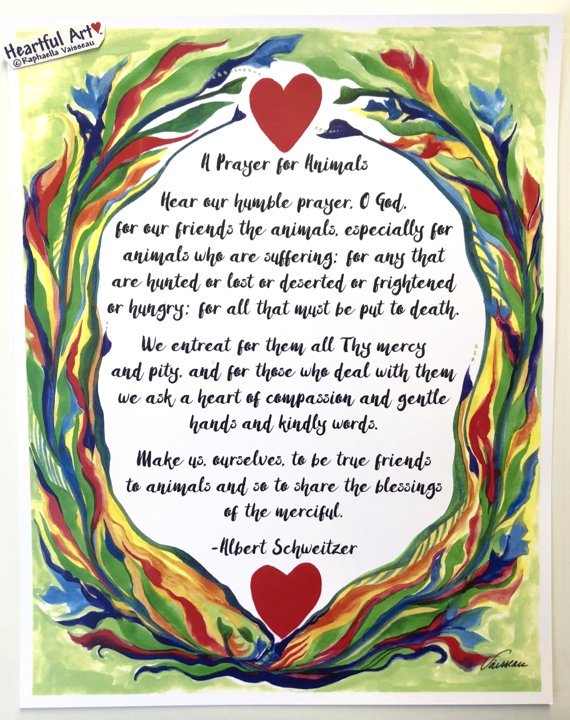 Heartful Art
© Raphaella Vaisseau
A Prayer for Animals
Hear our humble prayer, O God,
for our friends the animals, especially for
animals who are suffering; for any that
are hunted or lost or deserted or frightened
or hungry; for all that must be put to death.
We entreat for them all Thy mercy
and pity, and for those who deal with them
we ask a heart of compassion and gentle
hands and kindly words.
Make us, ourselves, to be true friends
to animals and so to share the blessings
of the merciful.
-Albert Schweitzer
Vaisseau